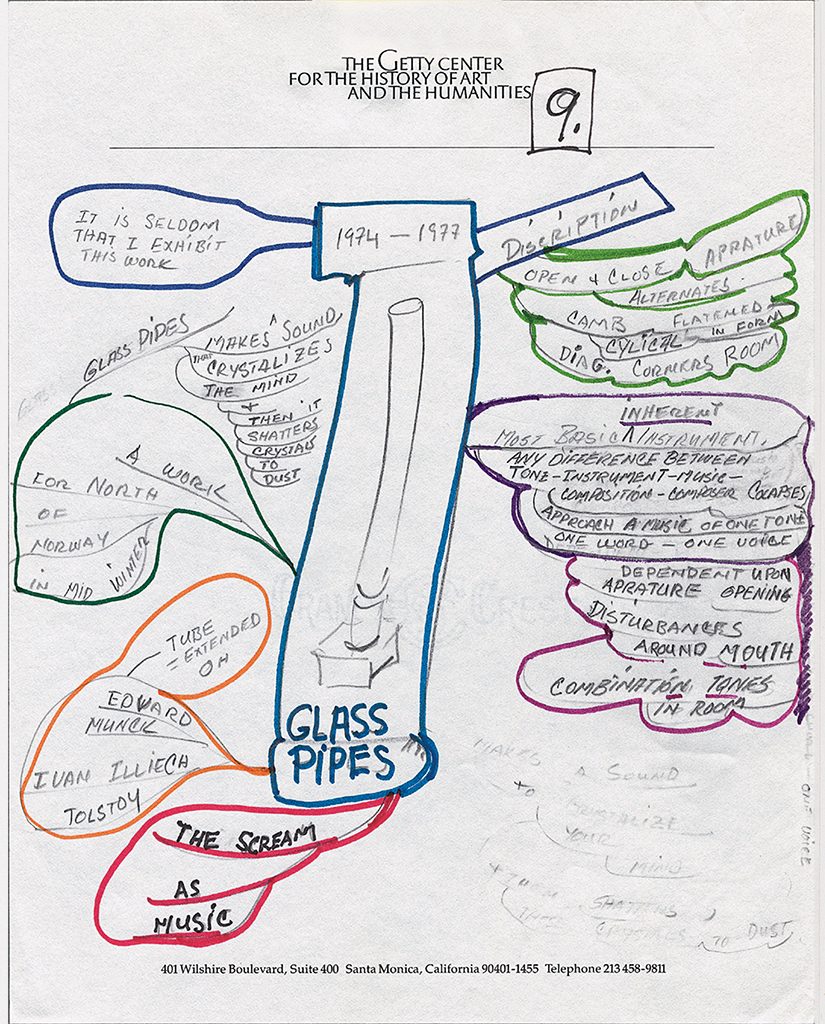 THE GETTY CENTER
FOR THE HISTORY OF ART
AND THE HUMANITIES
9.
IT IS SELDOM
THAT I EXHIBIT
THIS WORK
1974 — 1977
DISCRIPTION
APRATURE
OPEN + CLOSE
ALTERNATES
CAMB FLATENED
CYLICAL IN FORM
DIAG. CORNERS ROOM
GLASS PIPES
MAKES A SOUND
THAT CRYSTALIZES
THE MIND
+
THEN IT
SHATTERS
CRYSTALS
TO
DUST
INHERENT
MOST BASIC INSTRUMENT.
ANY DIFFERENCE BETWEEN
TONE-INSTRUMENT-MUSIC-
COMPOSITION-COMPOSER COLAPSES
APPROACH A MUSIC OF ONE TONE
ONE WORD — ONE VOICE
A WORK
FOR NORTH
OF
NORWAY
IN MID WINTER
DEPENDENT UPON
APRATURE OPENING
DISTURBANCES
AROUND MOUTH
COMBINATION TONES
IN ROOM
TUBE
= EXTENDED
OH
EDVARD
MUNCK
IVAN ILLIECH
TOLSTOY
GLASS
PIPES
THE SCREAM
AS
MUSIC
MAKES
A SOUND
TO
YOUR
MIND
SHATTERS
TO DUST
ONE VOICE
401 Wilshire Boulevard, Suite 400 Santa Monica, California 90401-1455 Telephone 213 458-9811